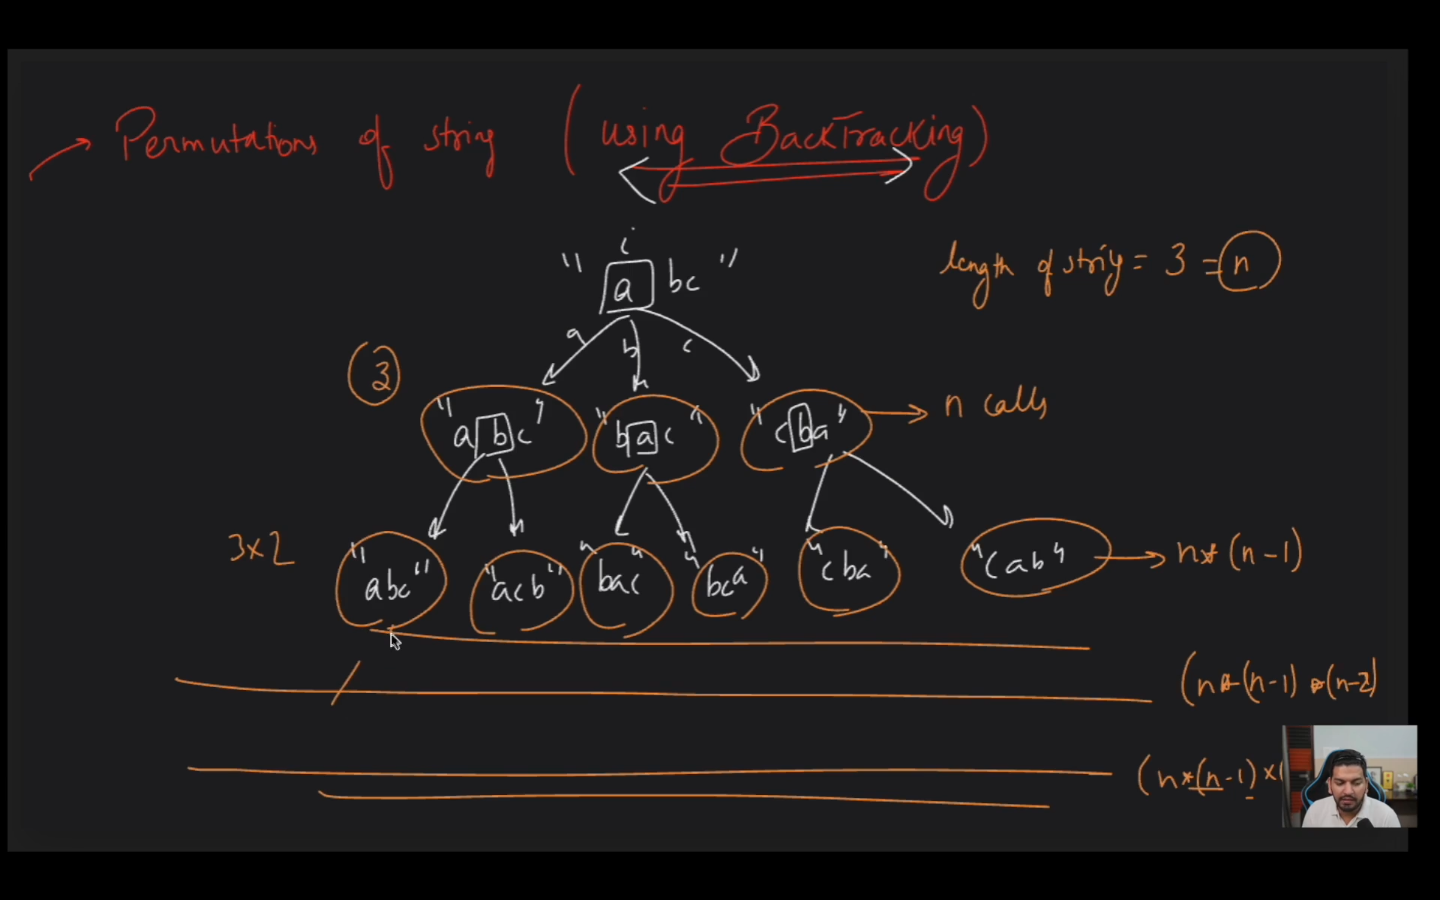 → Permutations of string (using BackTracking)
i
"abc"
length of string = 3 = n
a b c
3
"abc" "bac" "cba" → n calls
3×2
"abc" "acb" "bac" "bca" "cba" "cab" → n*(n-1)
(n*(n-1)*(n-2)
(n*(n-1)×